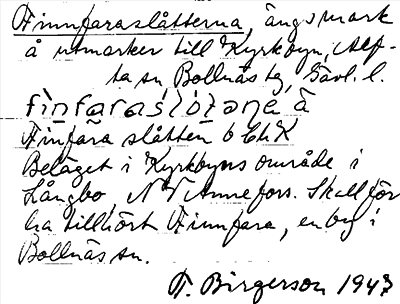 Finnfaraslåtterna, ängsmark
å utmarker till Kyrkbyn, Alf-
ta sn Bollnäs tg, Gävl. l.
fìnfaras̷lòtəɳa å
Finfara slåtten b Ek K
Beläget i Kyrkbyns område i
Långbo, NV Annefors. Skall för
ha tillhört Finnfara, en by i
Bollnäs sn.
T. Birgerson 1947